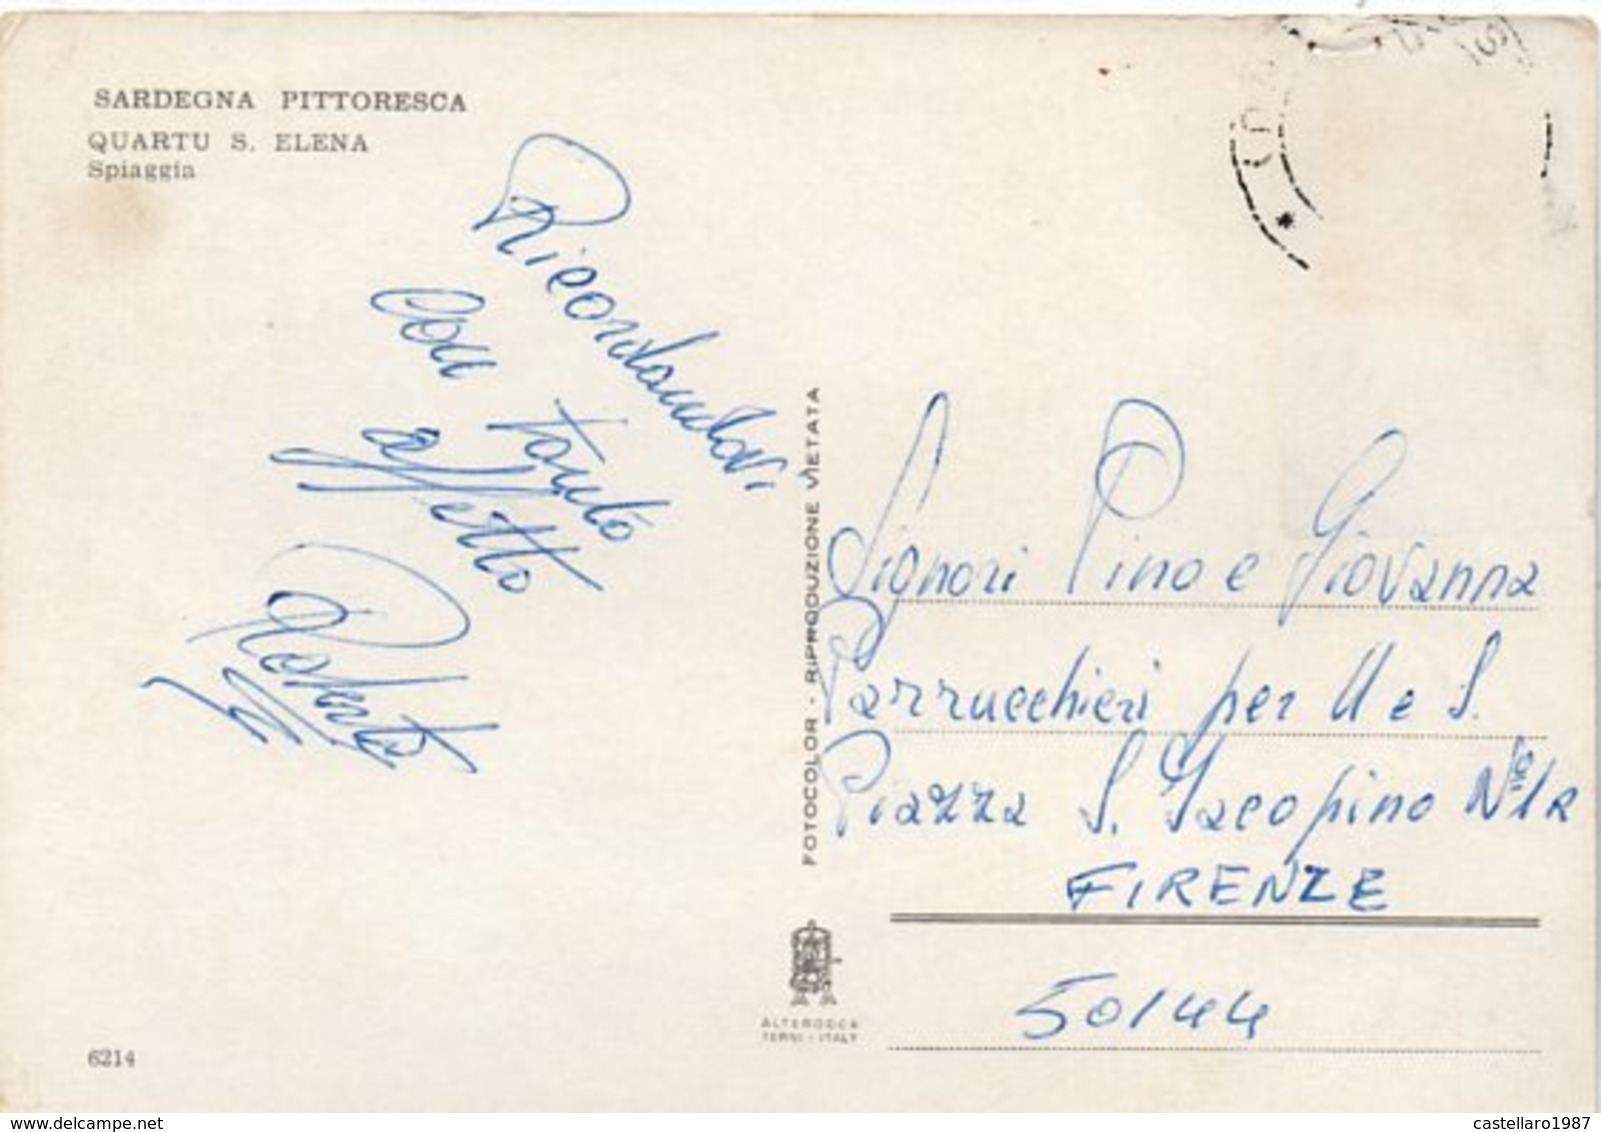 SARDEGNA PITTORESCA
QUARTU S. ELENA
Spiaggia
Ricordandovi
con tanto
affetto
Roberto
FOTOCOLOR - RIPRODUZIONE VIETATA
Signori Pino e Giovanna
Parrucchieri per U e S.
Piazza S. Jacopino N° 1R
FIRENZE
50144
ALTEROCCA
TERNI - ITALY
6214
www.delcampe.net
castellaro1987